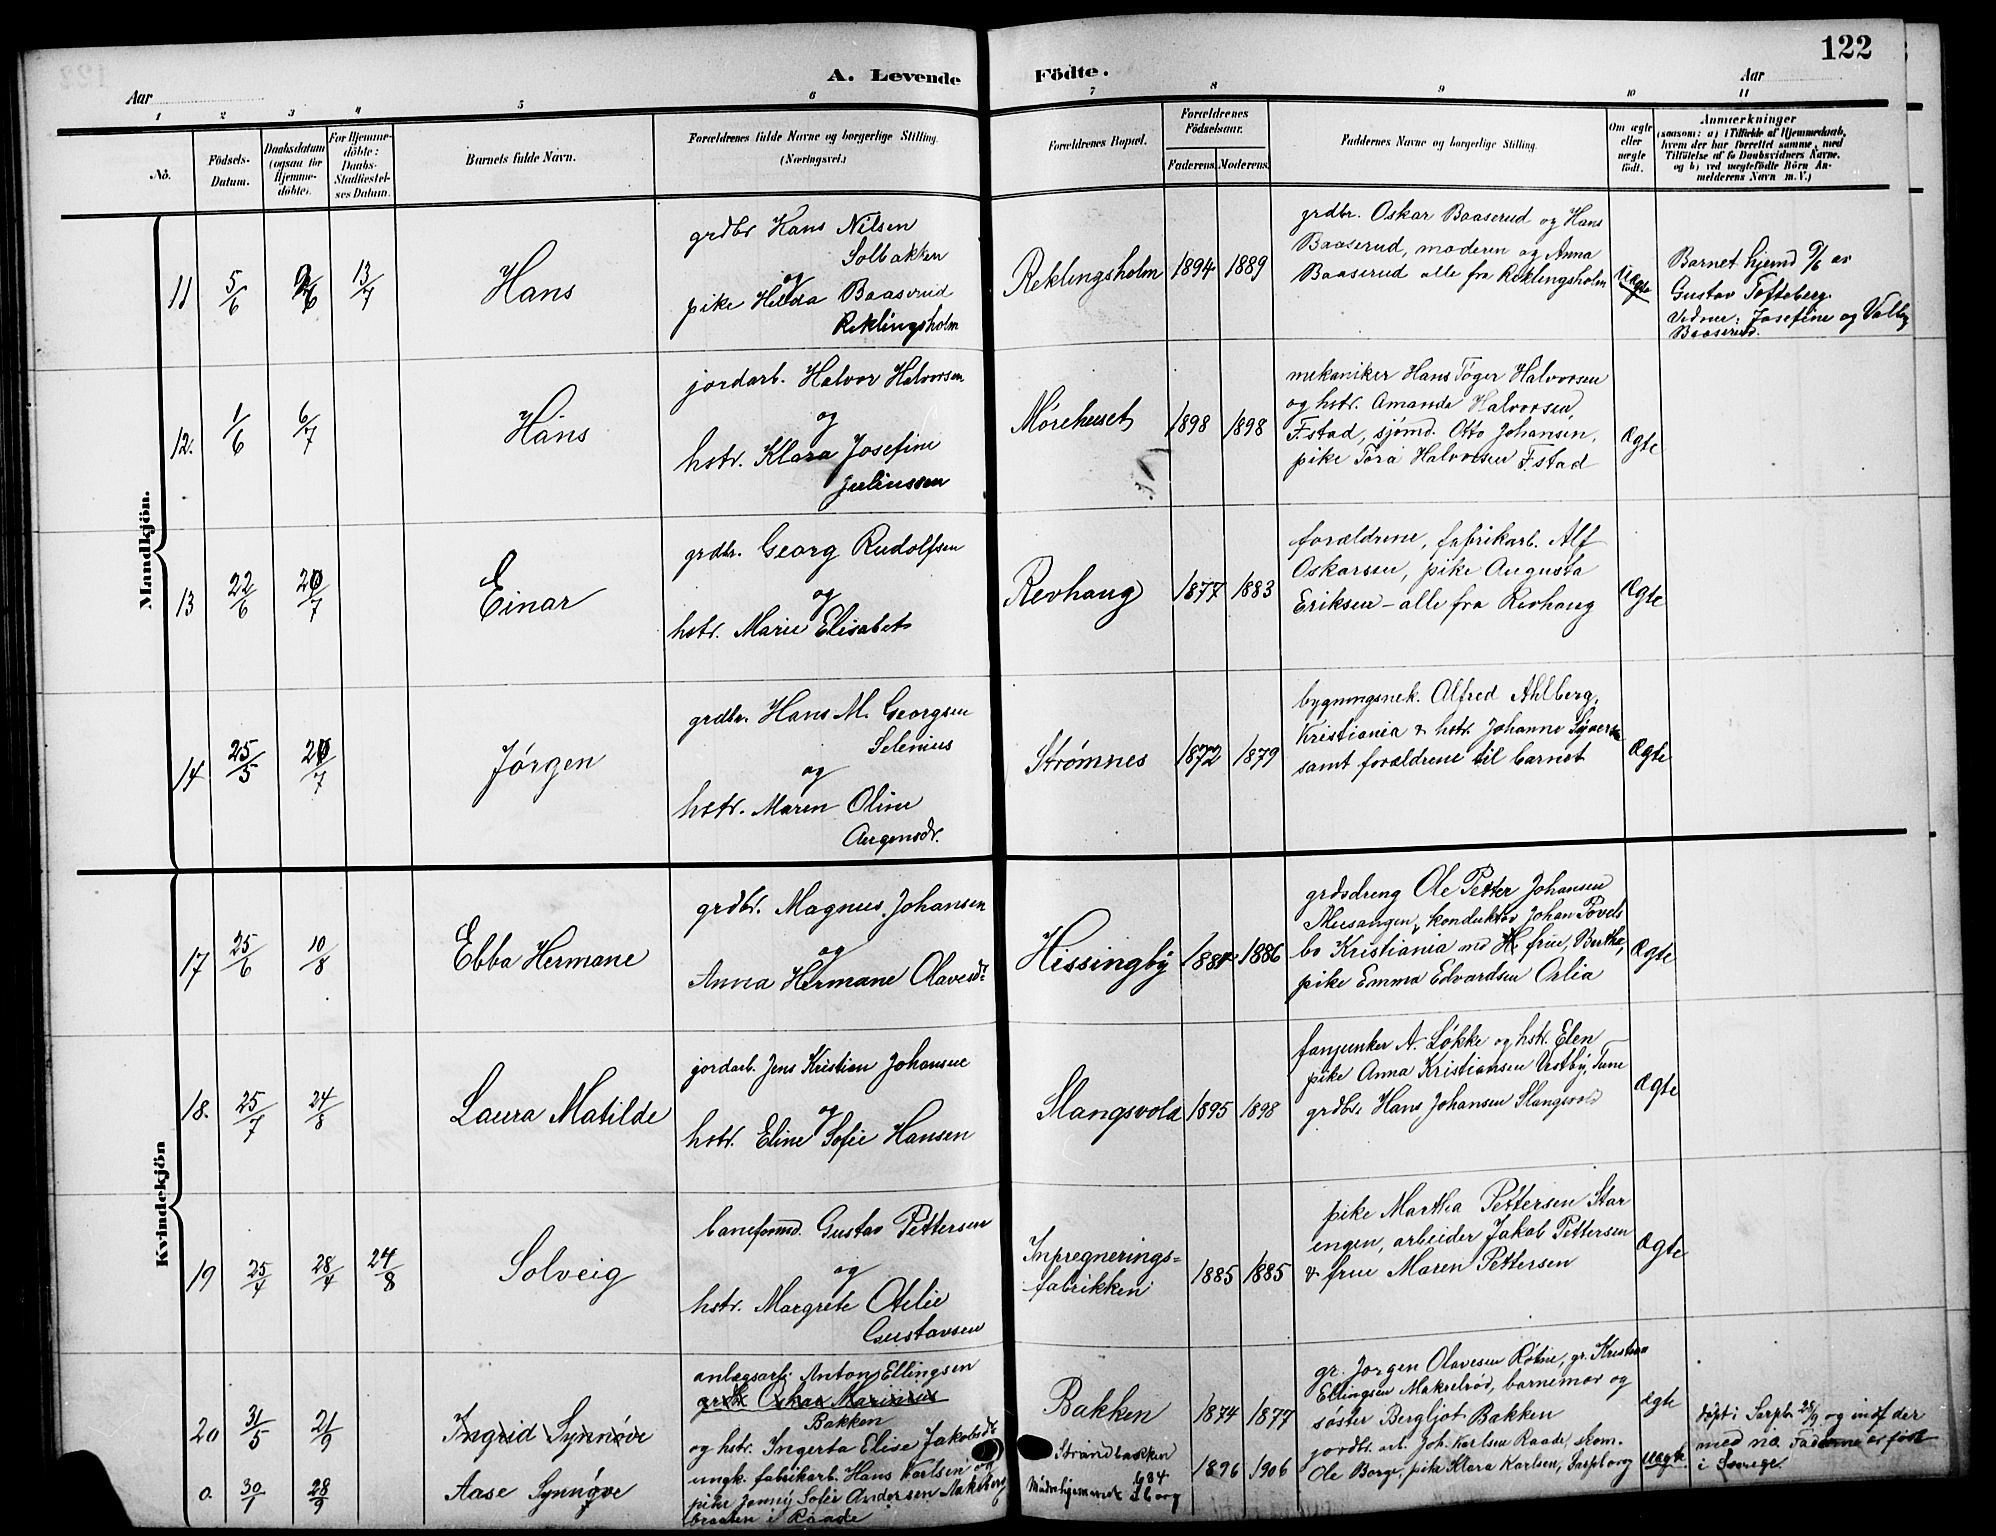 122
A. Levende Födte.
Aar
Aar
1 2 3 4 5 6 7 8 9 10 11
No.
Födsels-
Datum.
Daabsdatum
(ogsaa for
Hjemme-
döbte).
For Hjemme-
döbte:
Daabs-
Stadfæstel-
ses Datum.
Barnets fulde Navn.
Forældrenes fulde Navne og borgerlige Stilling.
(Næringsvei.)
Forældrenes Bopæl.
Forældrenes
Födselsaar.
Faderens. Moderens.
Faddernes Navne og borgerlige Stilling.
Om ægte
eller
uægte
født.
Anmærkninger
(saasom: a) i Tilfælde af Hjemmedaab,
hvem der har forrettet samme, med
Tilföielse af to Daabsvidners Navne,
og b) ved uægtefödte Börn An-
melderens Navn m. V.)
Mandkjön.
11 5/6 9/6 13/7 Hans
grdbr Hans Nilsen
Solbakken
og
pike Hilda Baaserud
Reklingsholm
Reklingsholm 1894 1889
grdbr. Oskar Baaserud og Hans
Baaserud, moderen og Anna
Baaserud alle fra Reklingsholm
Uægte
Barnet hjemd 9/6 av
Gustav Tofteberg.
Vidner: Josefine og Valby
Baaserud.
12. 1/6 6/7 Hans
jordarb. Halvor Halvorsen
og
hstr. Klara Josefine
Juliussen
Mörehuset 1898 1898
mekaniker Hans Töger Halvorsen
og hstr. Amanda Halvorsen,
F.stad, sjömd. Otto Johansen,
pike Tora Halvorsen F.stad
Ægte
13 22/6 20/7 Einar
grdbr. Georg Rudolfsen
og
hstr. Marie Elisabet
Revhaug 1877 1883
forældrene, fabrikarb. Alf
Oskarsen, pike Augusta
Eriksen - alle fra Revhaug
Ægte
14 25/5 20/7 Jörgen
grdbr. Hans M. Georgsen
Selenius
og
hstr. Maren Oline
Augensdr.
Strömnes 1872 1879
bygningsnek. Alfred Ahlberg,
Kristiania & hstr. Johanne
samt forældrene til barnet
Ægte
Kvindekjön
17 25/6 10/8 Ebba Hermane
grdbr. Magnus Johansen
og
Anna Hermane Olavesdr
Hissingby 1886
grdsdreng Ole Petter Johansen
konduktör Johan Povels
bo Kristiania med frue, Berthe,
pike Emma Edvardsen Orlia
Ægte
18. 25/7 24/8 Laura Matilde
jordarb. Jens Kristian Johansen
og
hstr. Eline Sofie Hansen
Slangsvold 1895 1898
fanjunker A. Lökke og hstr. Elen
pike Anna Kristiansen Vestby, Tune
grdbr. Hans Johansen Slangsvold
Ægte
19 25/4 28/4 24/8 Solveig
baneformd. Gustav Pettersen
og
hstr. Margrete Otelie
Gustavsen
Inpregnerings-
fabrikken 1885 1885
pike Martha Pettersen Stor
engen, arbeider Jakob Pettersen
& frue Maren Pettersen
Ægte
20 31/5 21/9 Ingrid Synnöve
anlægsarb. Anton Ellingsen
grdb Oskar Marinius
Bakken
og hstr. Ingerta Elise Jakobsdtr
Bakken 1874 1877
gr. Jorgen Olavesen Rötne, gr. Kristian
Ellingsen Makrelröd, barnemor og
söster Bergljot Bakken
Ægte
0. 30/1 28/9 Aase Synnöve
ungk. fabrikarb. Hans Karlsen og
pike Jonny Sofie Andersen Aakeberg
braaten i Raade
Strandbakken
Mödrehjemmet
S borg 1896 1906
jordbr. arb. Joh. Karlsen Raade, skom.
Ole Borge, pike Klara Karlsen, Sarpborg
Uægte.
döpt i Sarpb. 28/9 og indf der
med no Faderne er född
i Sverige.